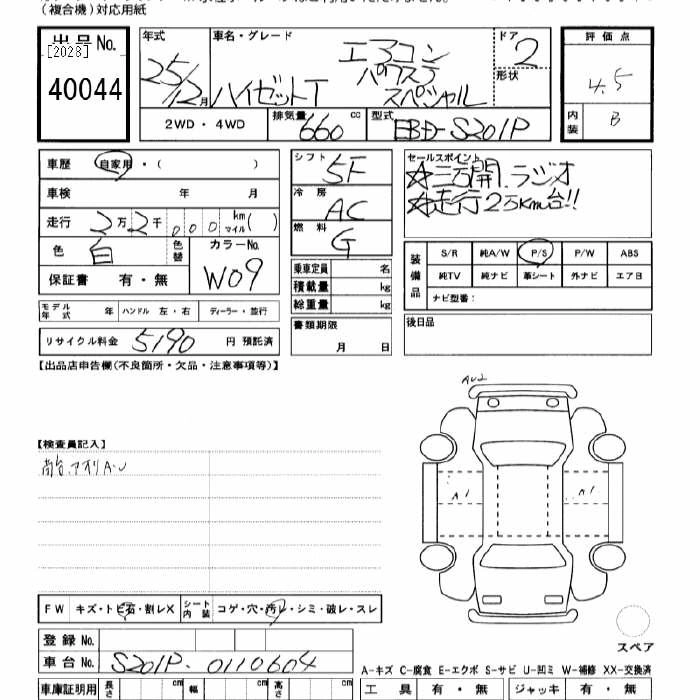 (複合機)対応用紙
出品No.
[2028]
40044
年式
25/12月
車名・グレード
ハイゼットT
エアコン
パワステ
スペシャル
ドア
2
形状
評価点
4.5
内装
B
2WD・4WD
排気量 660 cc
型式 EBD-S201P
車歴 自家用・( )
車検 年 月
走行 2万2千000 km マイル( )
色 白 色替 カラーNo.
W09
保証書 有・無
シフト 5F
冷房 AC
燃料 G
乗車定員 名
積載量 kg
総重量 kg
書類期限
月 日
セールスポイント
☆三方開.ラジオ
☆走行2万Km台!!
装備品
S/R 純A/W P/S P/W ABS
純TV 純ナビ 革シート 外ナビ エアB
ナビ型番:
後日品
モデル年式 年 ハンドル 左・右 ディーラー・並行
リサイクル料金 5190 円 預託済
【出品店申告欄(不良箇所・欠品・注意事項等)】
【検査員記入】
AU2
A1
A1
FW キズ・トビ石・割レX シート内装 コゲ・穴・汚レ・シミ・破レ・スレ
登録No.
車台No. S201P-0110604
車庫証明用 長さ cm 幅 cm 高さ cm
スペア
A-キズ C-腐食 E-エクボ S-サビ U-凹ミ W-補修 XX-交換済
工具 有・無 ジャッキ 有・無